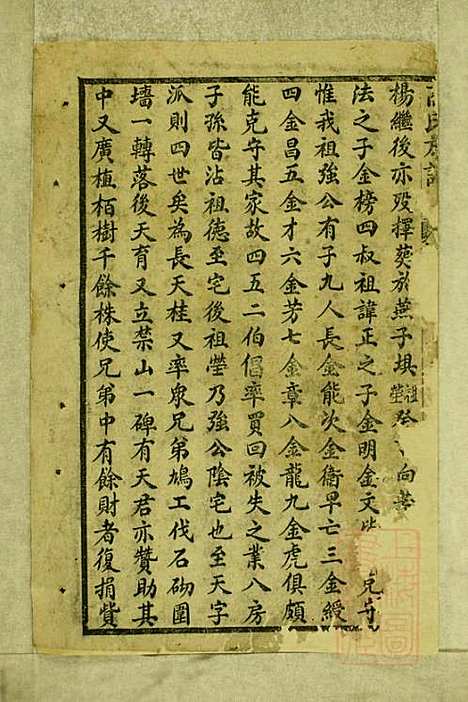 楊繼後亦歿擇葬於燕子埧祖塋 向
法之子金榜四叔祖諱正之子金明金文
惟我祖強公有子九人長金能次金衛早亡三金綬
四金昌五金才六金芳七金章八金龍九金虎俱頗
能克守其家故四五二伯倡率買回被失之業八房
子孫皆沾祖德至宅後祖塋乃強公陰宅也至天字
派則四世矣為長天桂又率眾兄弟鳩工伐石砌圍
墻一轉落後天育又立禁山一碑有天君亦贊助其
中又廣植栢樹千餘株使兄弟中有餘財者復捐貲
氏族譜